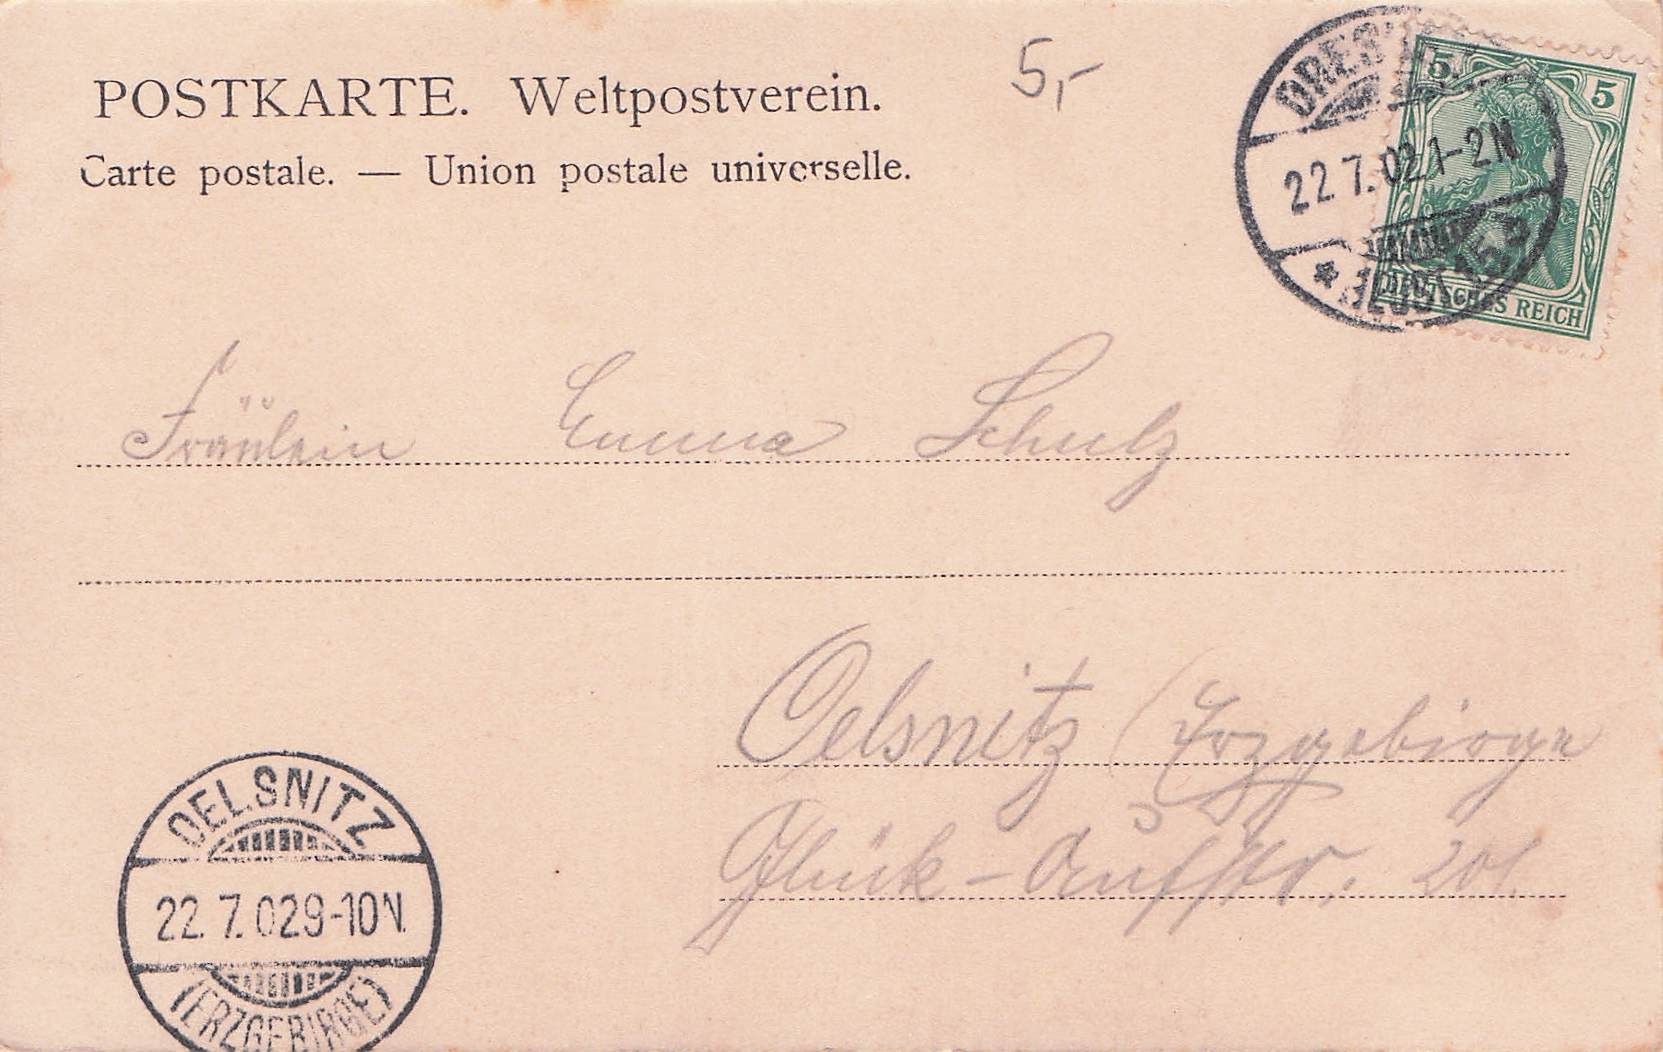 POSTKARTE. Weltpostverein.
Carte postale. — Union postale universelle.
5,-
5 5
DEUTSCHES REICH
22.7.02.1-2N
Fräulein Emma Schulz
Oelsnitz (Erzgebirge
Glück-Aufstr. 201
OELSNITZ
22.7.029-10N.
(ERZGEBIRGE)